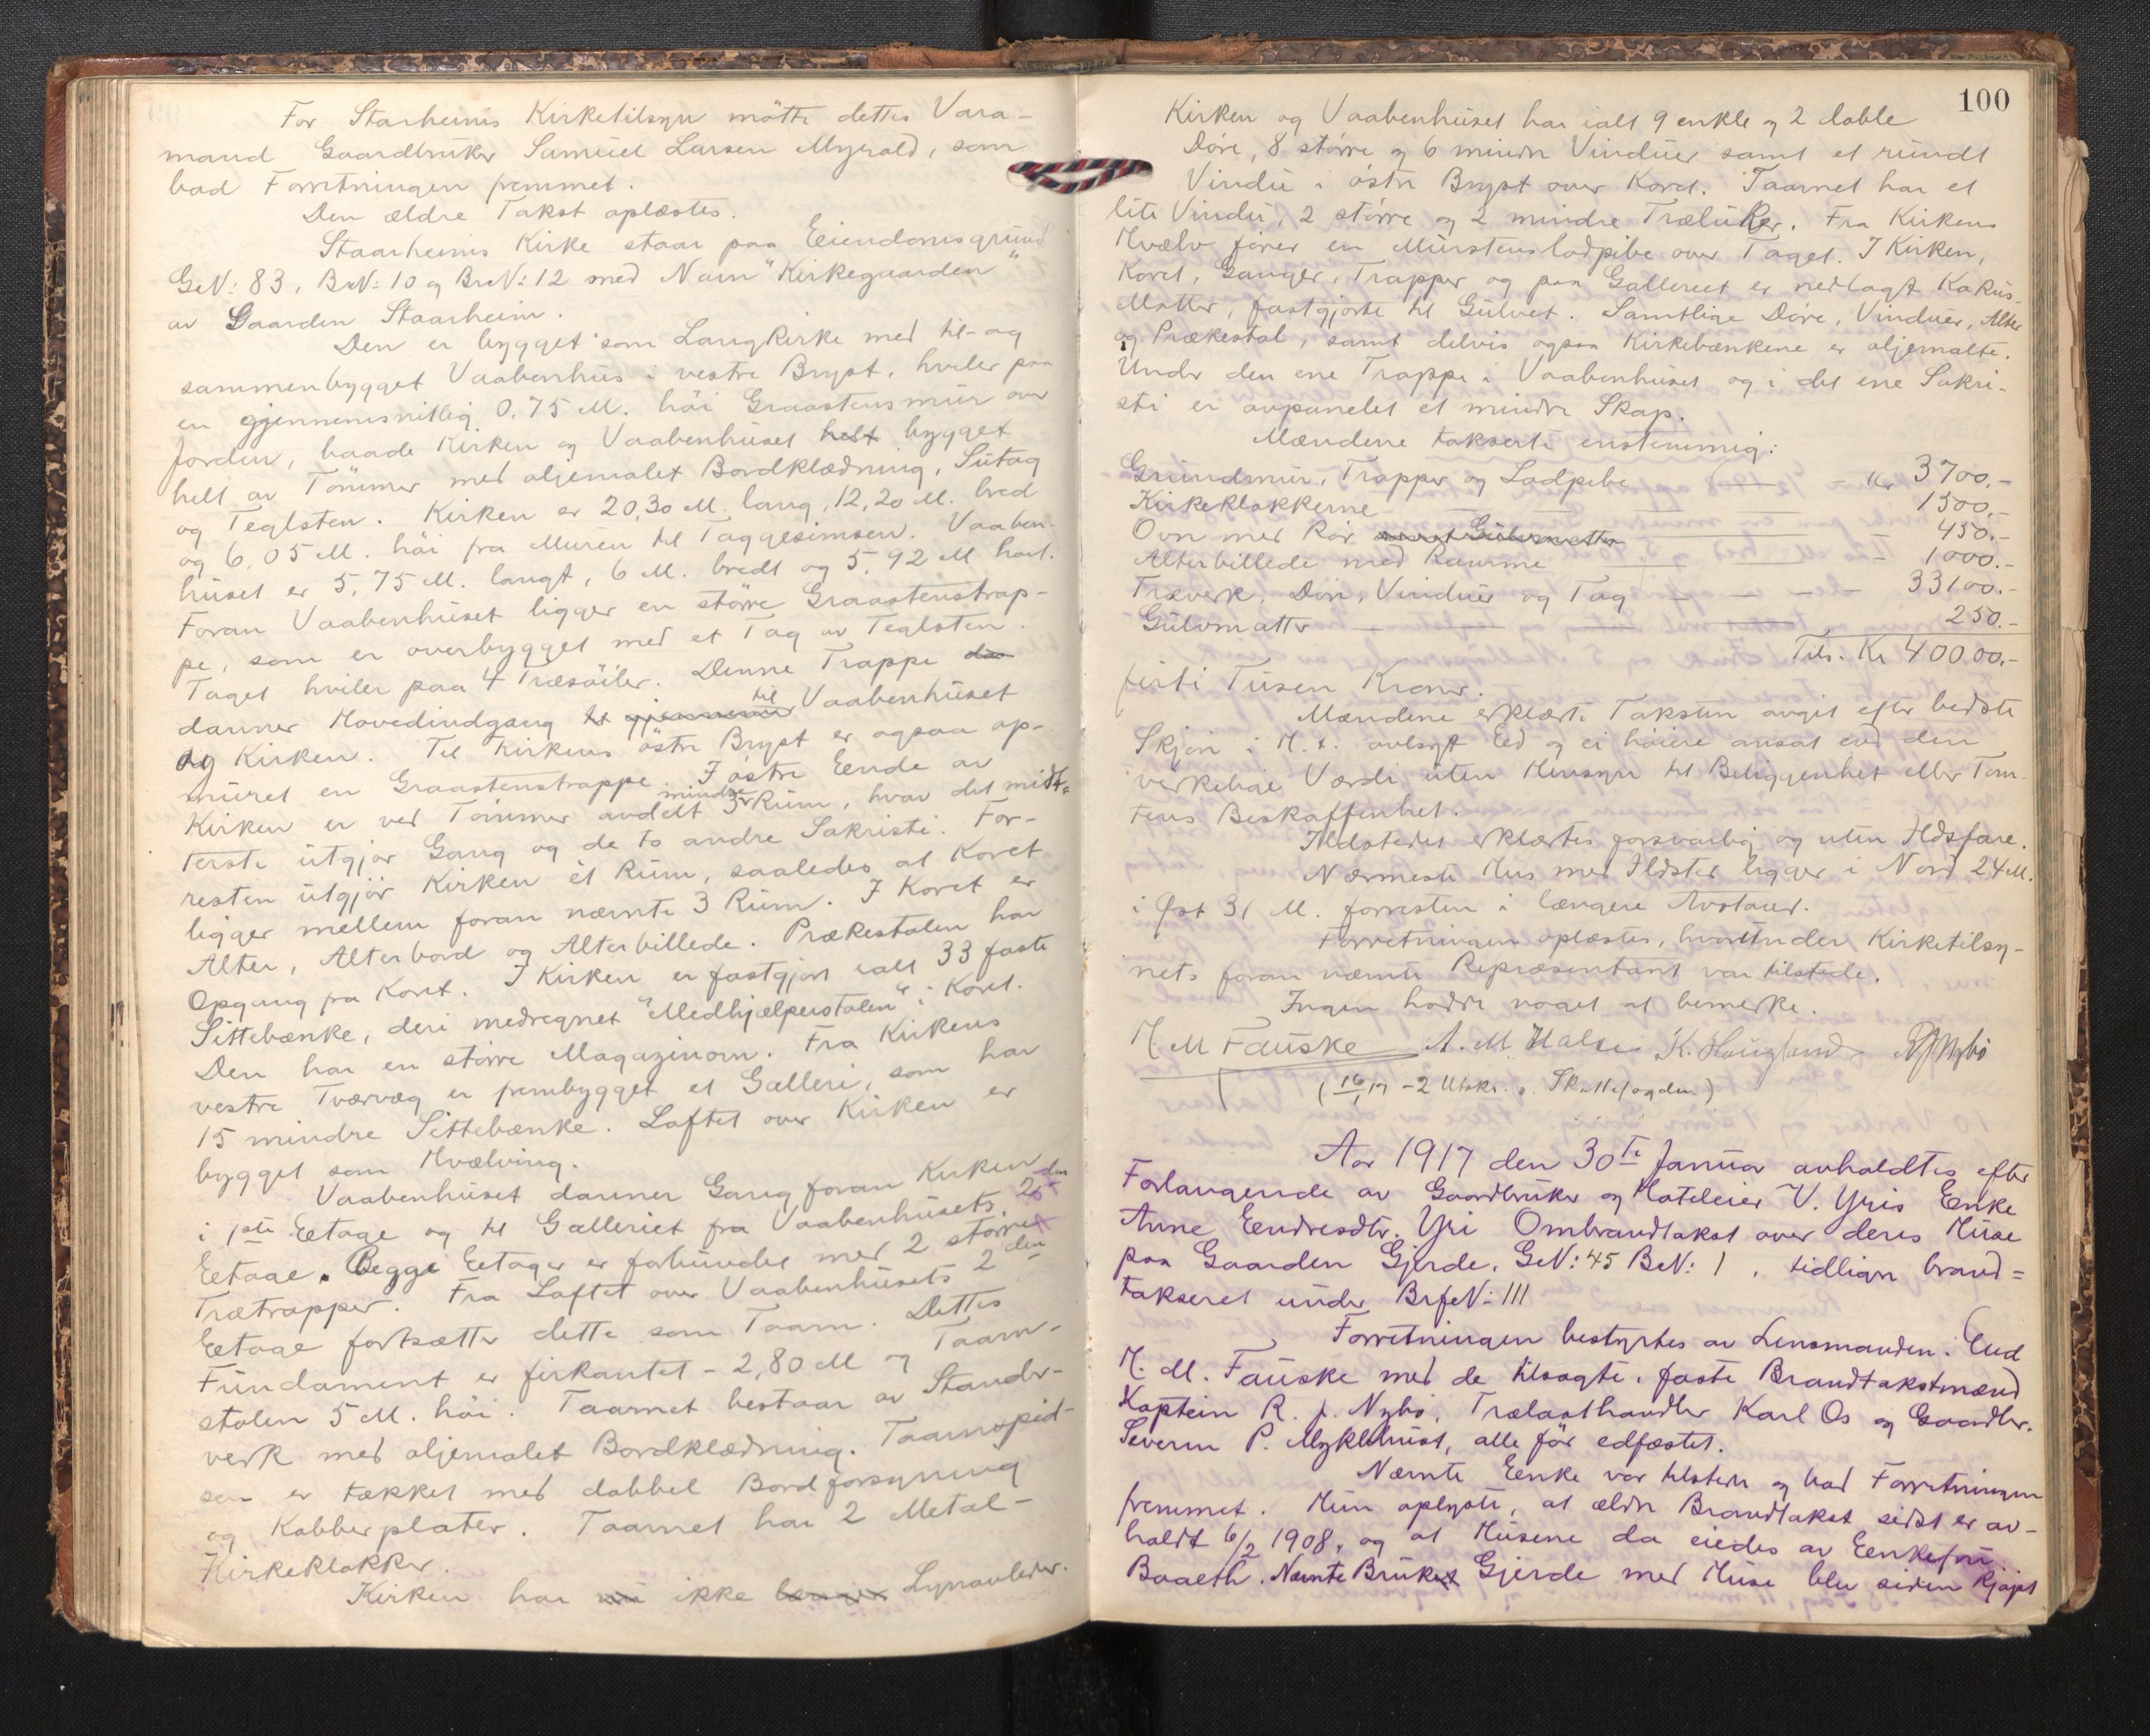 For Starheims Kirketilsyn mötte dettes Vara-
mand Gaardbruker Samuel Larsen Myrold, som
bad Forretningen fremmet.
Den ældre Takst oplæstes.
Staarheims Kirke staar paa Eiendomsgrund
G.N: 83, B.N: 10 og Br.N: 12 med Navn "Kirkegaarden"
av Gaarden Staarheim.
Den er bygget som Langkirke med til- og
sammenbygget Vaabenhus i vestre Bryst, hviler paa
en gjennemsnitlig 0,75 M. höi Graastensmur over
Jorden, baade Kirken og Vaabenhuset helt bygget
helt av Tömmer med oljemalet Bordklædning, Sutag
og Teglsten. Kirken er 20,30 M. lang, 12,20 M. bred
og 6,05 M. höi fra Muren til Taggesimsen. Vaaben-
huset er 5,75 M. langt, 6 M. bredt og 5,92 M höit.
Foran Vaabenhuset ligger en större Graastenstrap-
pe, som er overbygget med et Tag av Teglsten.
Taget hviler paa 4 Træsöiler. Denne Trappe da
danner Hovedindgang til Vaabenhuset
og Kirken. Til Kirkens östre Bryst er ogsaa op-
muret en Graastenstrappe. I östre Ende av
Kirken er ved Tömmer avdelt 3 mindre Rum, hvor det midt-
terste utgjör Gang og de to andre Sakristi. For-
resten utgjör Kirken ét Rum, saaledes at Koret
ligger mellem foran nævnte 3 Rum. I Koret er
Alter, Alterbord og Alterbillede. Prækestolen har
Opgang fra Koret. I Kirken er fastgjort ialt 33 faste
Sittebænke, deri medregnet "Medhjælperstolen" i Koret.
Den har en större Magazinovn. Fra Kirkens
vestre Tværvæg er frembygget et Galleri, som har
15 mindre Sittebænke. Loftet over Kirken er
bygget som Hvælving.
Vaabenhuset danner Gang foran Kirken
i 1ste Eetage og til Galleriet fra Vaabenhusets 2den
Eetage. Begge Eetager er forbundet med 2 större
Trætrapper. Fra Loftet over Vaabenhusets 2den
Eetage fortsætter dette som Taarn. Dettes
Fundament er firkantet - 2,80 M og Taarn-
stolen 5 M. höi. Taarnet bestaar av Stander-
verk med oljemalet Bordklædning. Taarnspid-
sen er tækket med dobbel Bordforsyning
og Kobberplater. Taarnet har 2 Metal-
Kirkeklokker.
Kirken har ikke Lynavleder.
100
Kirken og Vaabenhuset har ialt 9 enkle og 2 doble
Döre, 8 större og 6 mindre Vinduer samt et rundt
Vindu i östre Bryst over Koret. Taarnet har et
lite Vindu, 2 större og 2 mindre Træluker. Fra Kirkens
Hvælv förer en Murstenslodpibe over Taget. I Kirken,
Koret, Ganger, Trapper og paa Galleriet er nedlagt Kokus-
Matter, fastgjorte til Gulvet. Samtlige Döre, Vinduer, Alter
og Prækestol, samt delvis ogsaa Kirkebænkene er oljemalte.
Under den ene Trappe i Vaabenhuset og i det ene Sakri-
sti er avpanelet et mindre Skap.
Mændene takserte enstemmig:
Grundmur, Trapper og Lodpibe — - Kr 3700,-
Kirkeklokkerne — — — 1500,-
Ovn med Rör samt Gulvmatter — - 450.-
Alterbillede med Ramme — — - 1000.-
Træverk, Döre, Vinduer og Tag - - - - 33100.-
Gulvmatter — — — — 250.-
Tils. Kr 40000,-
firti Tusen Kroner.
Mændene erklærte Taksten avgit efter bedste
Skjön i H. t. avlagt Eed og ei höiere ansat end den
virkelige Værdi uten Hensyn til Beliggenhet eller Tom-
tens Beskaffenhet.
Ildstedet erklærtes forsvarlig og uten Ildsfare.
Nærmeste Hus med Ildsted ligger i Nord 24 M.
i Øst 31 M. forresten i længere Avstand.
Forretningen oplæstes, hvorunder Kirketilsy-
nets foran nævnte Repræsentant var tilstede.
Ingen hadde noget at bemerke.
H M Fauske A. M. Halse K. Haugland R J Nybö
(16/1 17 - 2 Utskr. Skattefogden)
Aar 1917 den 30te Januar avholdtes efter
Forlangende av Gaardbruker og Hoteleier V. Yris Enke
Anne Eendresdtr. Yri Ombrandtakst over deres Huse
paa Gaarden Gjerde, G.N: 45 B.N: 1, tidligere brand-
takseret under Brf.N: 111
Forretningen bestyrtes av Lensmanden i Eid
H. M. Fauske med de tilsagte, faste Brandtakstmænd
Kaptein R. J. Nybö, Trælasthandler Karl Os og Gaardbr.
Severin P. Myklebust, alle för edfæstet.
Nævnte Eenke var tilstede og bad Forretningen
fremmet. Hun oplyste, at ældre Brandtakst sidst er av-
holdt 6/2 1908, og at Husene da eiedes av Eenkefru
Baaeth. Nævnte Bruket Gjerde med Huse blev siden kjöpt